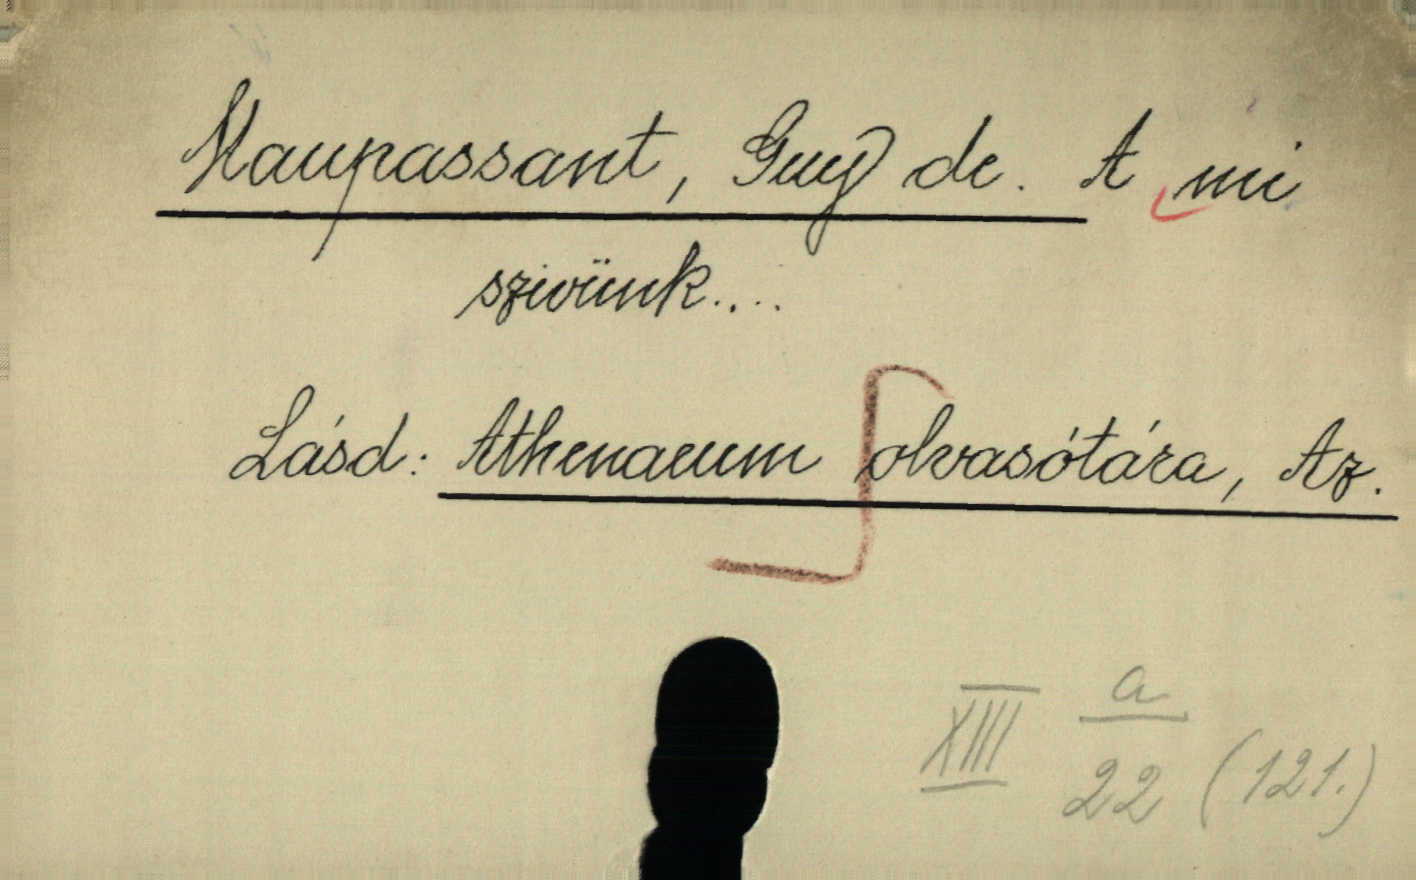 Maupassant, Guy de. A mi
szivünk....
Lásd: Athenaeum olvasótára, Az.
XIII a/22 (121.)